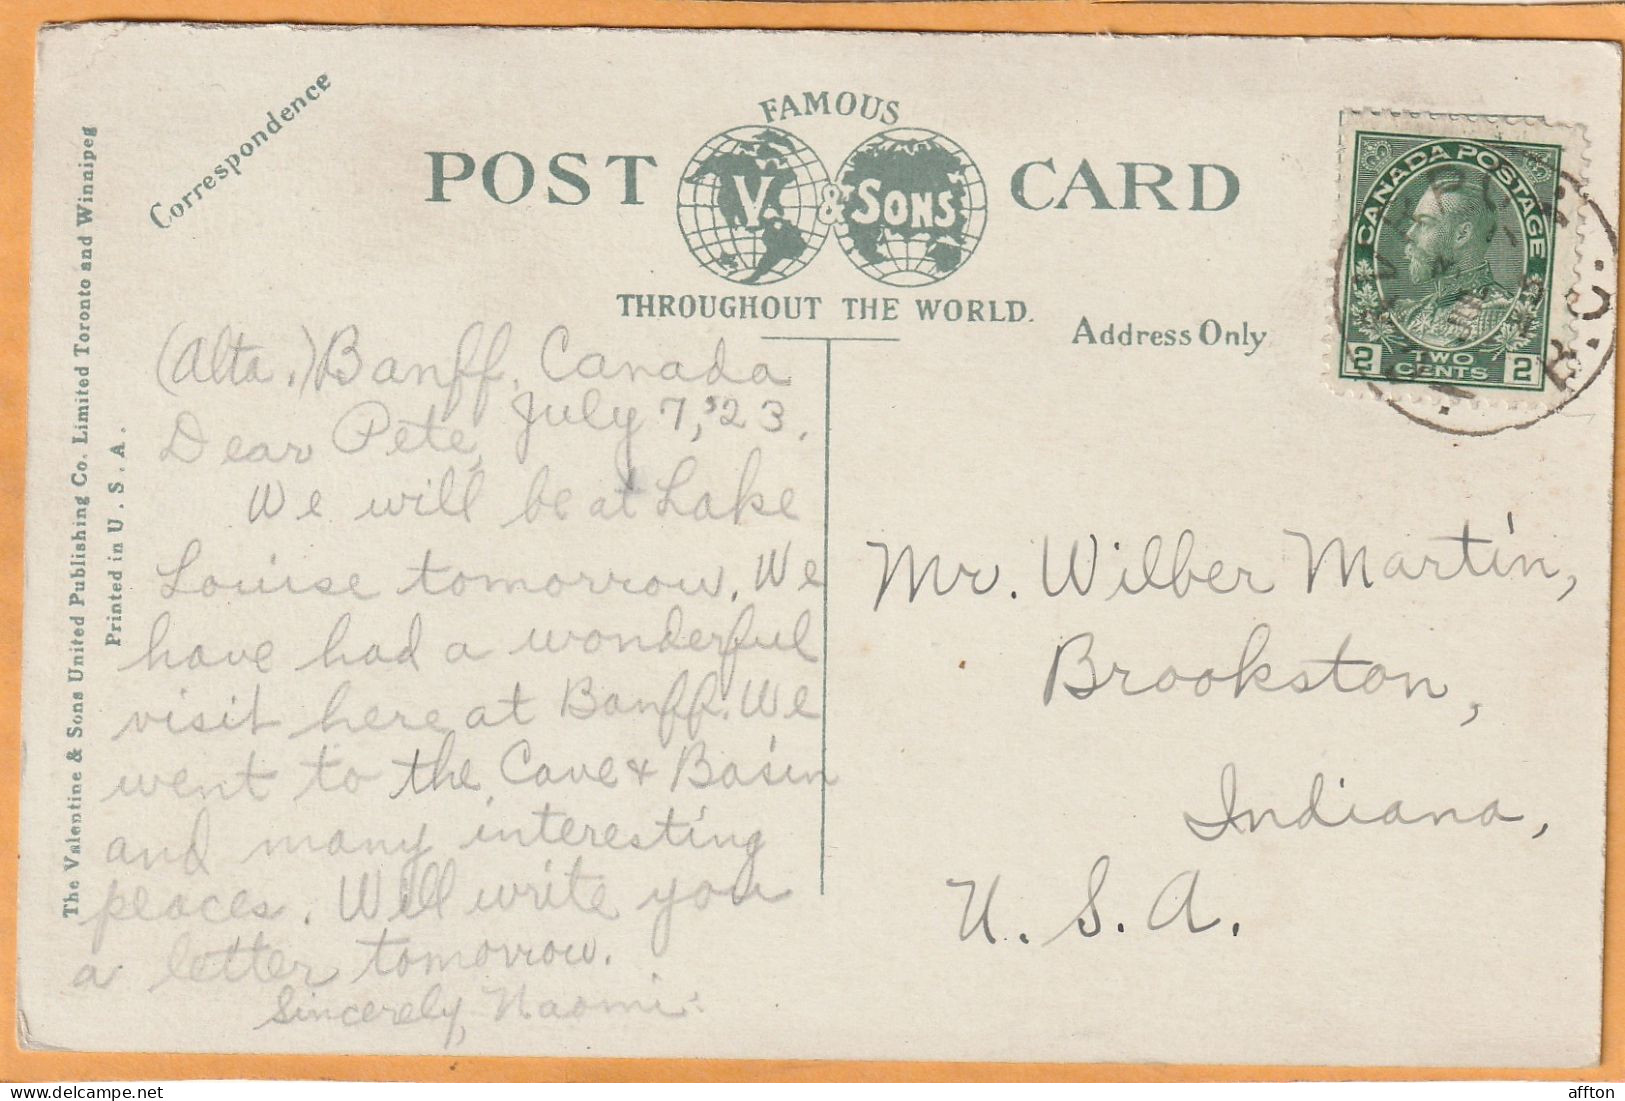 Correspondence
FAMOUS
POST CARD
V. & SONS
THROUGHOUT THE WORLD.
Address Only
The Valentine & Sons United Publishing Co. Limited Toronto and Winnipeg
Printed in U. S. A.
CANADA POSTAGE
2 TWO CENTS 2
B.C.
(Alta.) Banff, Canada
July 7, '23.
Dear Pete,
We will be at Lake
Louise tomorrow. We
have had a wonderful
visit here at Banff. We
went to the Cave & Basin
and many interesting
places. Will write you
a letter tomorrow.
Sincerely, Naomi.
Mr. Wilber Martin,
Brookston,
Indiana,
U. S. A.
affton